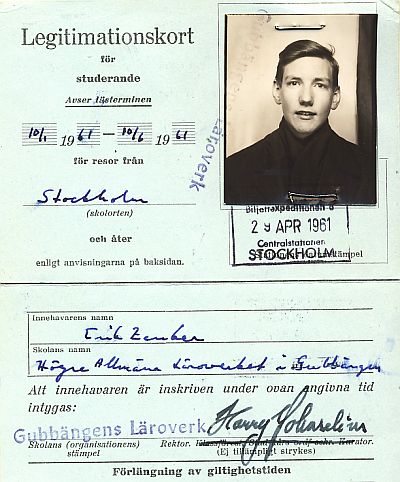 Legitimationskort
för
studerande
Avser lästerminen
10/1 1961 — 10/6 1961
för resor från
Stockholm
(skolorten)
och åter
enligt anvisningarna på baksidan.
Gubbängens Läroverk
Biljettexpeditionen 6
29 APR 1961
Centralstationen
STOCKHOLM
stämpel
Innehavarens namn
Erik Zenker
Skolans namn
Högre Allmäna Läroverket i Gubbängen
Att innehavaren är inskriven under ovan angivna tid
intygas:
Gubbängens Läroverk
Harry
Skolans (organisationens)
stämpel
Rektor. Klassföreståndare
Kurator.
(Ej tillämpligt strykes)
Förlängning av giltighetstiden